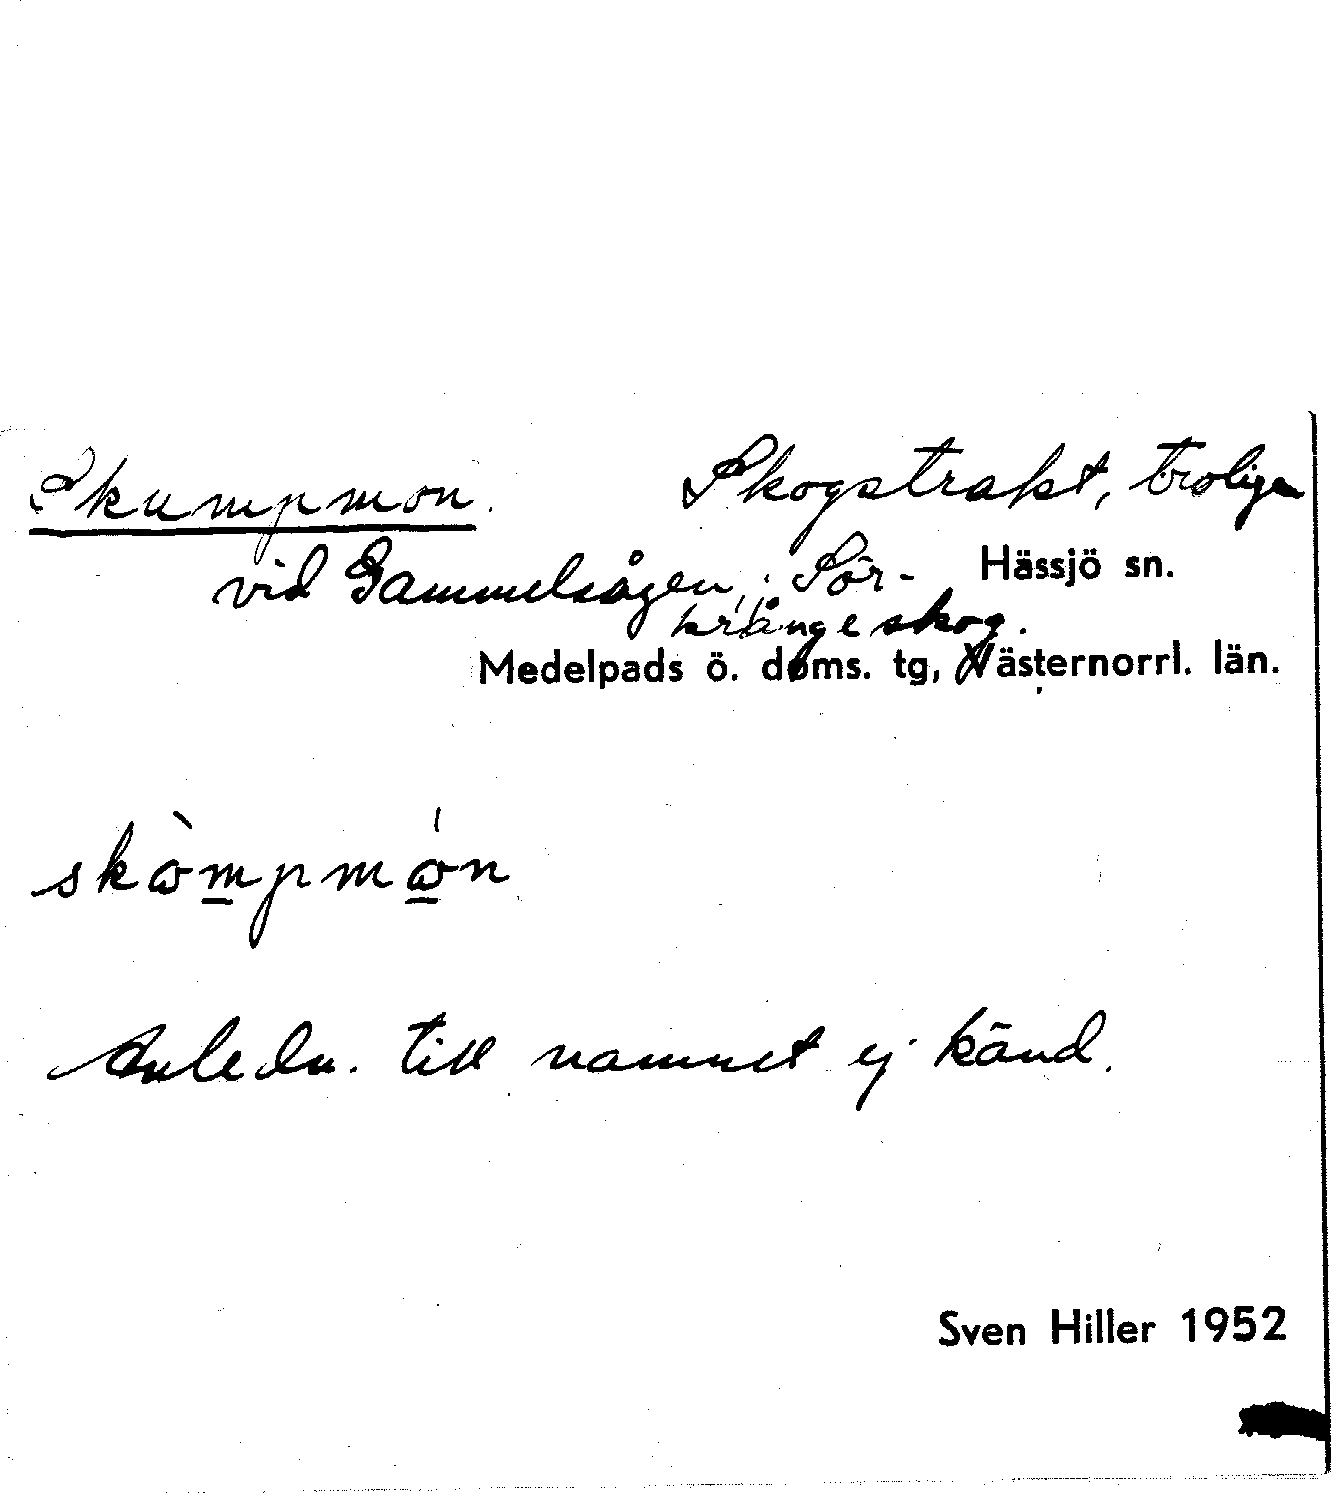 Skumpmon. Skogstrakt, troligen
vid Gammelsågen, i Sör-
krångeskog.
Hässjö sn.
Medelpads ö. doms. tg, Västernorrl. län.
skò̀mpmón
Anledn. till namnet ej känd.
Sven Hiller 1952